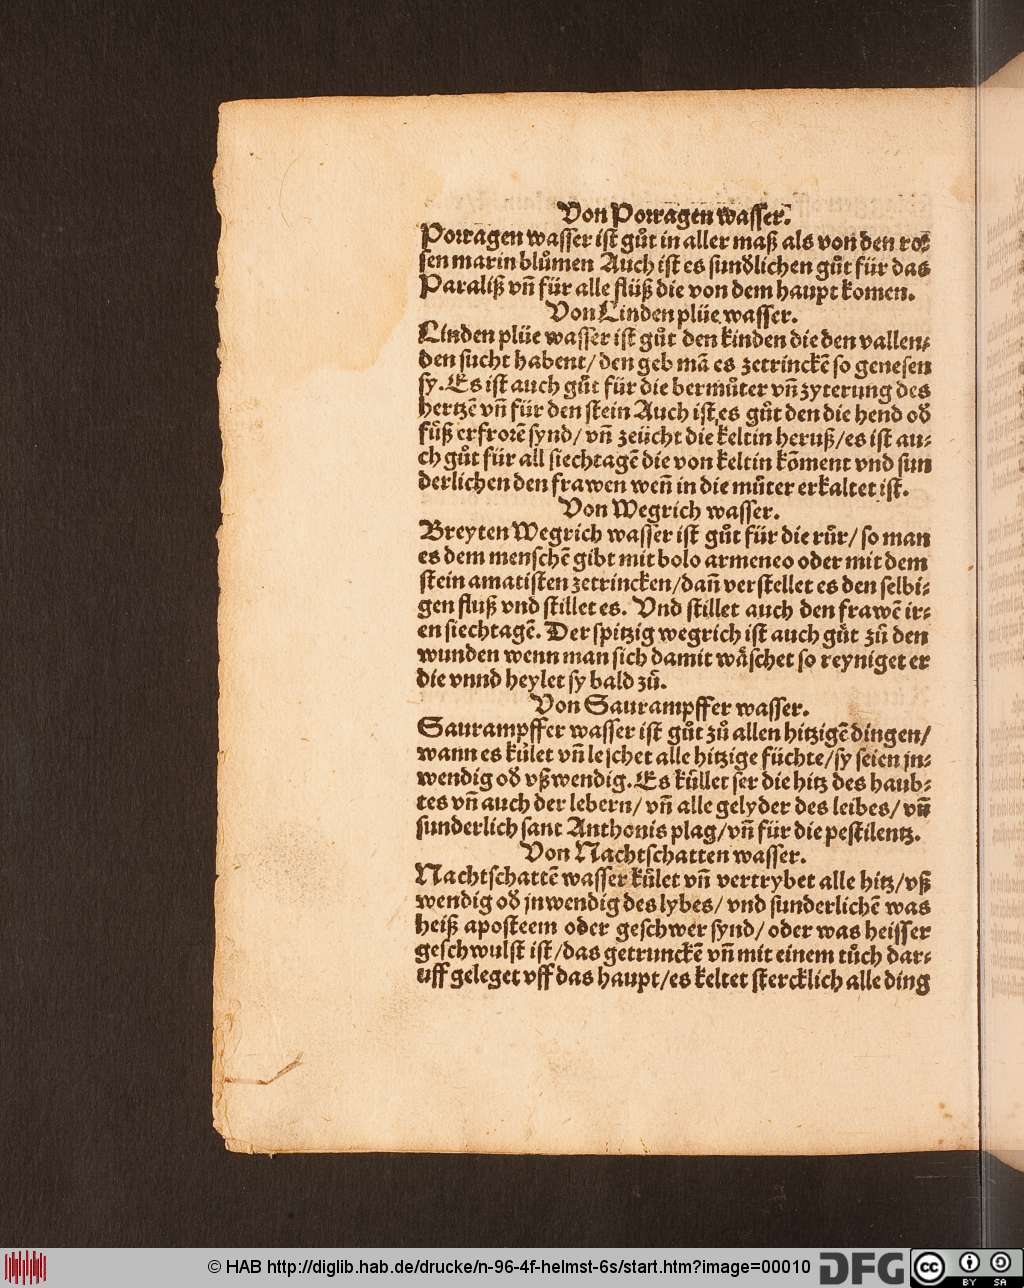 Von Porragen wasser.
Porragen wasser ist gůt in aller maß als von den ros
sen marin blůmen Auch ist es sunđlichen gůt für das
Paraliß vñ für alle flüß die von dem haupt komen.
Von Linden plüe wasser.
Linden plüe wasser ist gůt den kinden die den vallen⸗
den sucht habent/ den geb mã es zetrinckẽ so genesen
sy. Es ist auch gůt für die bermůter vñ zyterung des
hertzẽ vñ für den stein Auch ist es gůt den die hend ođ
fůß erfrorẽ synd/ vñ zeücht die keltin heruß/ es ist au⸗
ch gůt für all siechtagẽ die von keltin kõment vnd sun
derlichen den frawen weñ in die můter erkaltet ist.
Von Wegrich wasser.
Breyten Wegrich wasser ist gůt für die růr/ so man
es dem menschẽ gibt mit bolo armeneo oder mit dem
stein amatisten zetrincken/ dañ verstellet es den selbi⸗
gen fluß vnd stillet es. Vnd stillet auch den frawẽ ir⸗
en siechtagẽ. Der spitzig wegrich ist auch gůt zů den
wunden wenn man sich damit wåschet so reyniget er
die vnnd heylet sy bald zů.
Von Saurampffer wasser.
Saurampffer wasser ist gůt zů allen hitzigẽ dingen/
wann es kůlet vñ leschet alle hitzige füchte/ sy seien jn⸗
wendig ođ vßwendig. Es kůllet ser die hitz des haub⸗
tes vñ auch der lebern/ vñ alle gelyder des leibes/ vñ
sunderlich sant Anthonis plag/ vñ für die pestilentz.
Von Nachtschatten wasser.
Nachtschattẽ wasser kůlet vñ vertrybet alle hitz/ vß
wendig ođ jnwendig des lybes/ vnd sunderlichẽ was
heiß aposteem oder geschwer synd/ oder was heisser
geschwulst ist/ das getrunckẽ vñ mit einem tůch dar⸗
uff geleget vff das haupt/ es keltet stercklich alle ding
© HAB http://diglib.hab.de/drucke/n-96-4f-helmst-6s/start.htm?image=00010
DFG
cc
BY SA